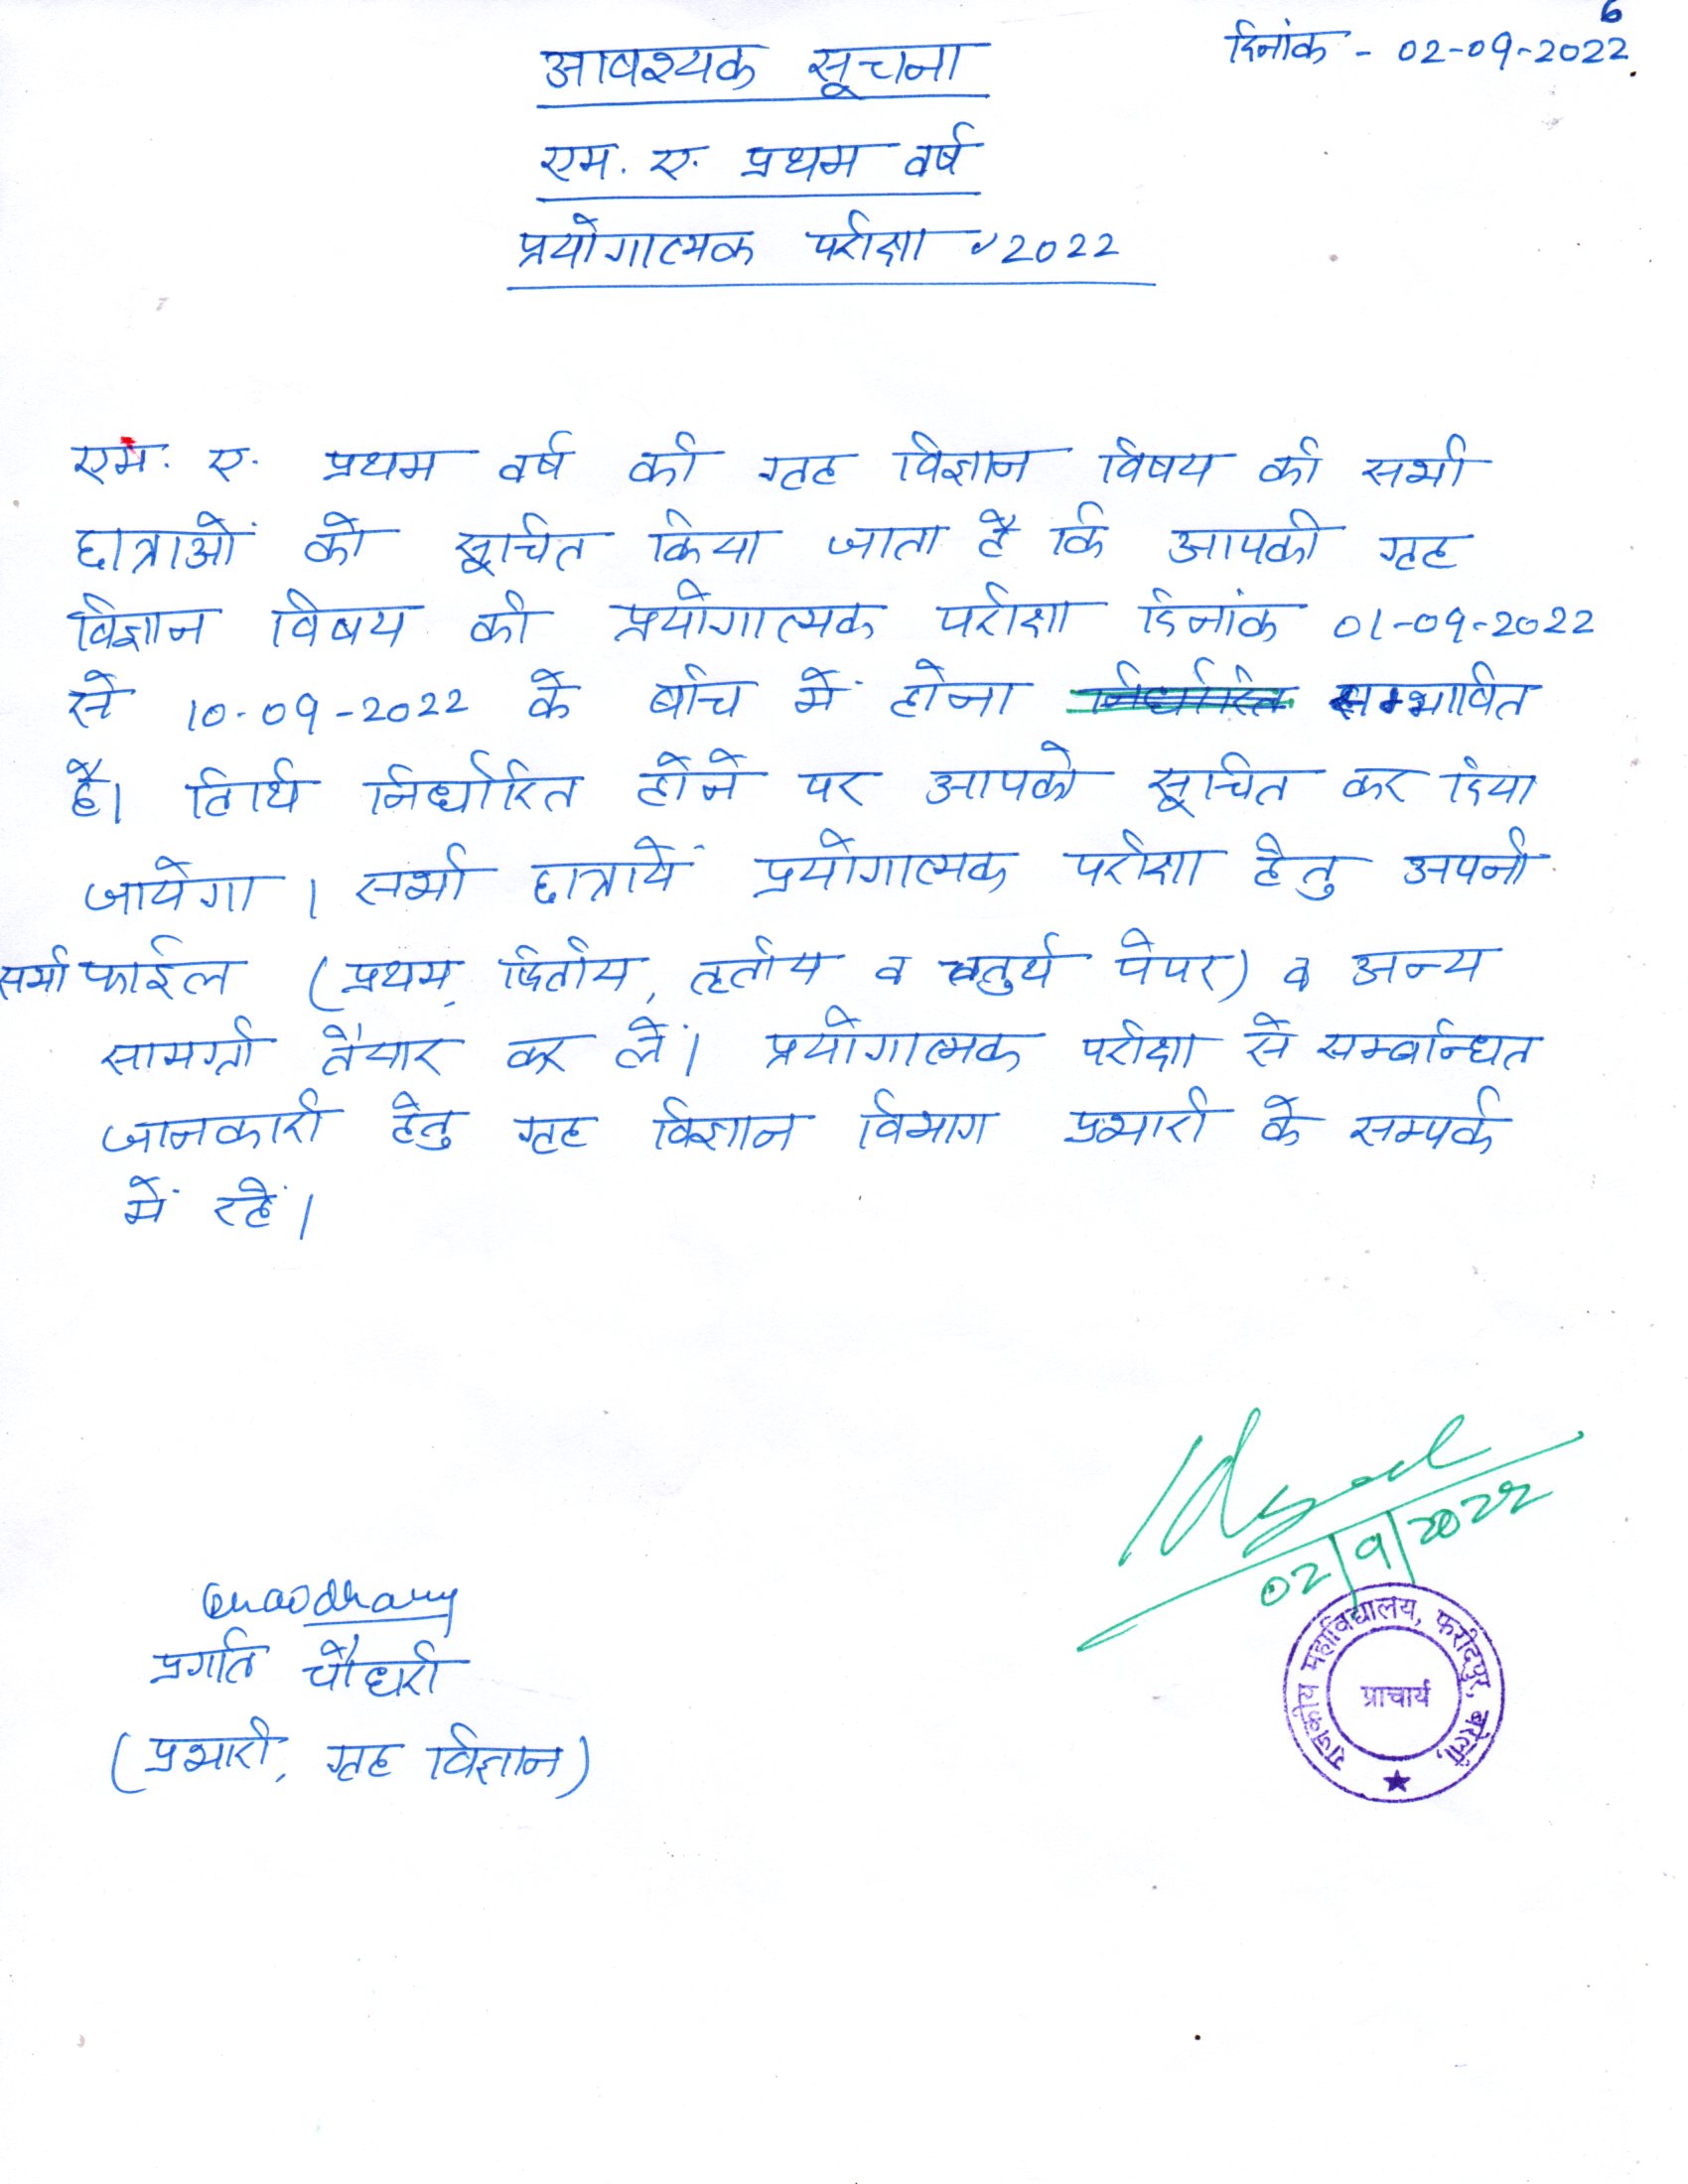 6
दिनांक - 02-09-2022
आवश्यक सूचना
एम. ए. प्रथम वर्ष
प्रयोगात्मक परीक्षा 2022
एम. ए. प्रथम वर्ष की गृह विज्ञान विषय की सभी
छात्राओं को सूचित किया जाता है कि आपकी गृह
विज्ञान विषय की प्रयोगात्मक परीक्षा दिनांक 01-09-2022
से 10-09-2022 के बीच में होना निर्धारित सम्भावित
है। तिथि निर्धारित होने पर आपको सूचित कर दिया
जायेगा। सभी छात्रायें प्रयोगात्मक परीक्षा हेतु अपनी
सभी फाईल (प्रथम, द्वितीय, तृतीय व चतुर्थ पेपर) व अन्य
सामग्री तैयार कर लें। प्रयोगात्मक परीक्षा से सम्बन्धित
जानकारी हेतु गृह विज्ञान विभाग प्रभारी के सम्पर्क
में रहें।
02/9/2022
Chaudhary
प्रगति चौधरी
(प्रभारी, गृह विज्ञान)
राजकीय महाविद्यालय, फरीदपुर, बरेली,
प्राचार्य